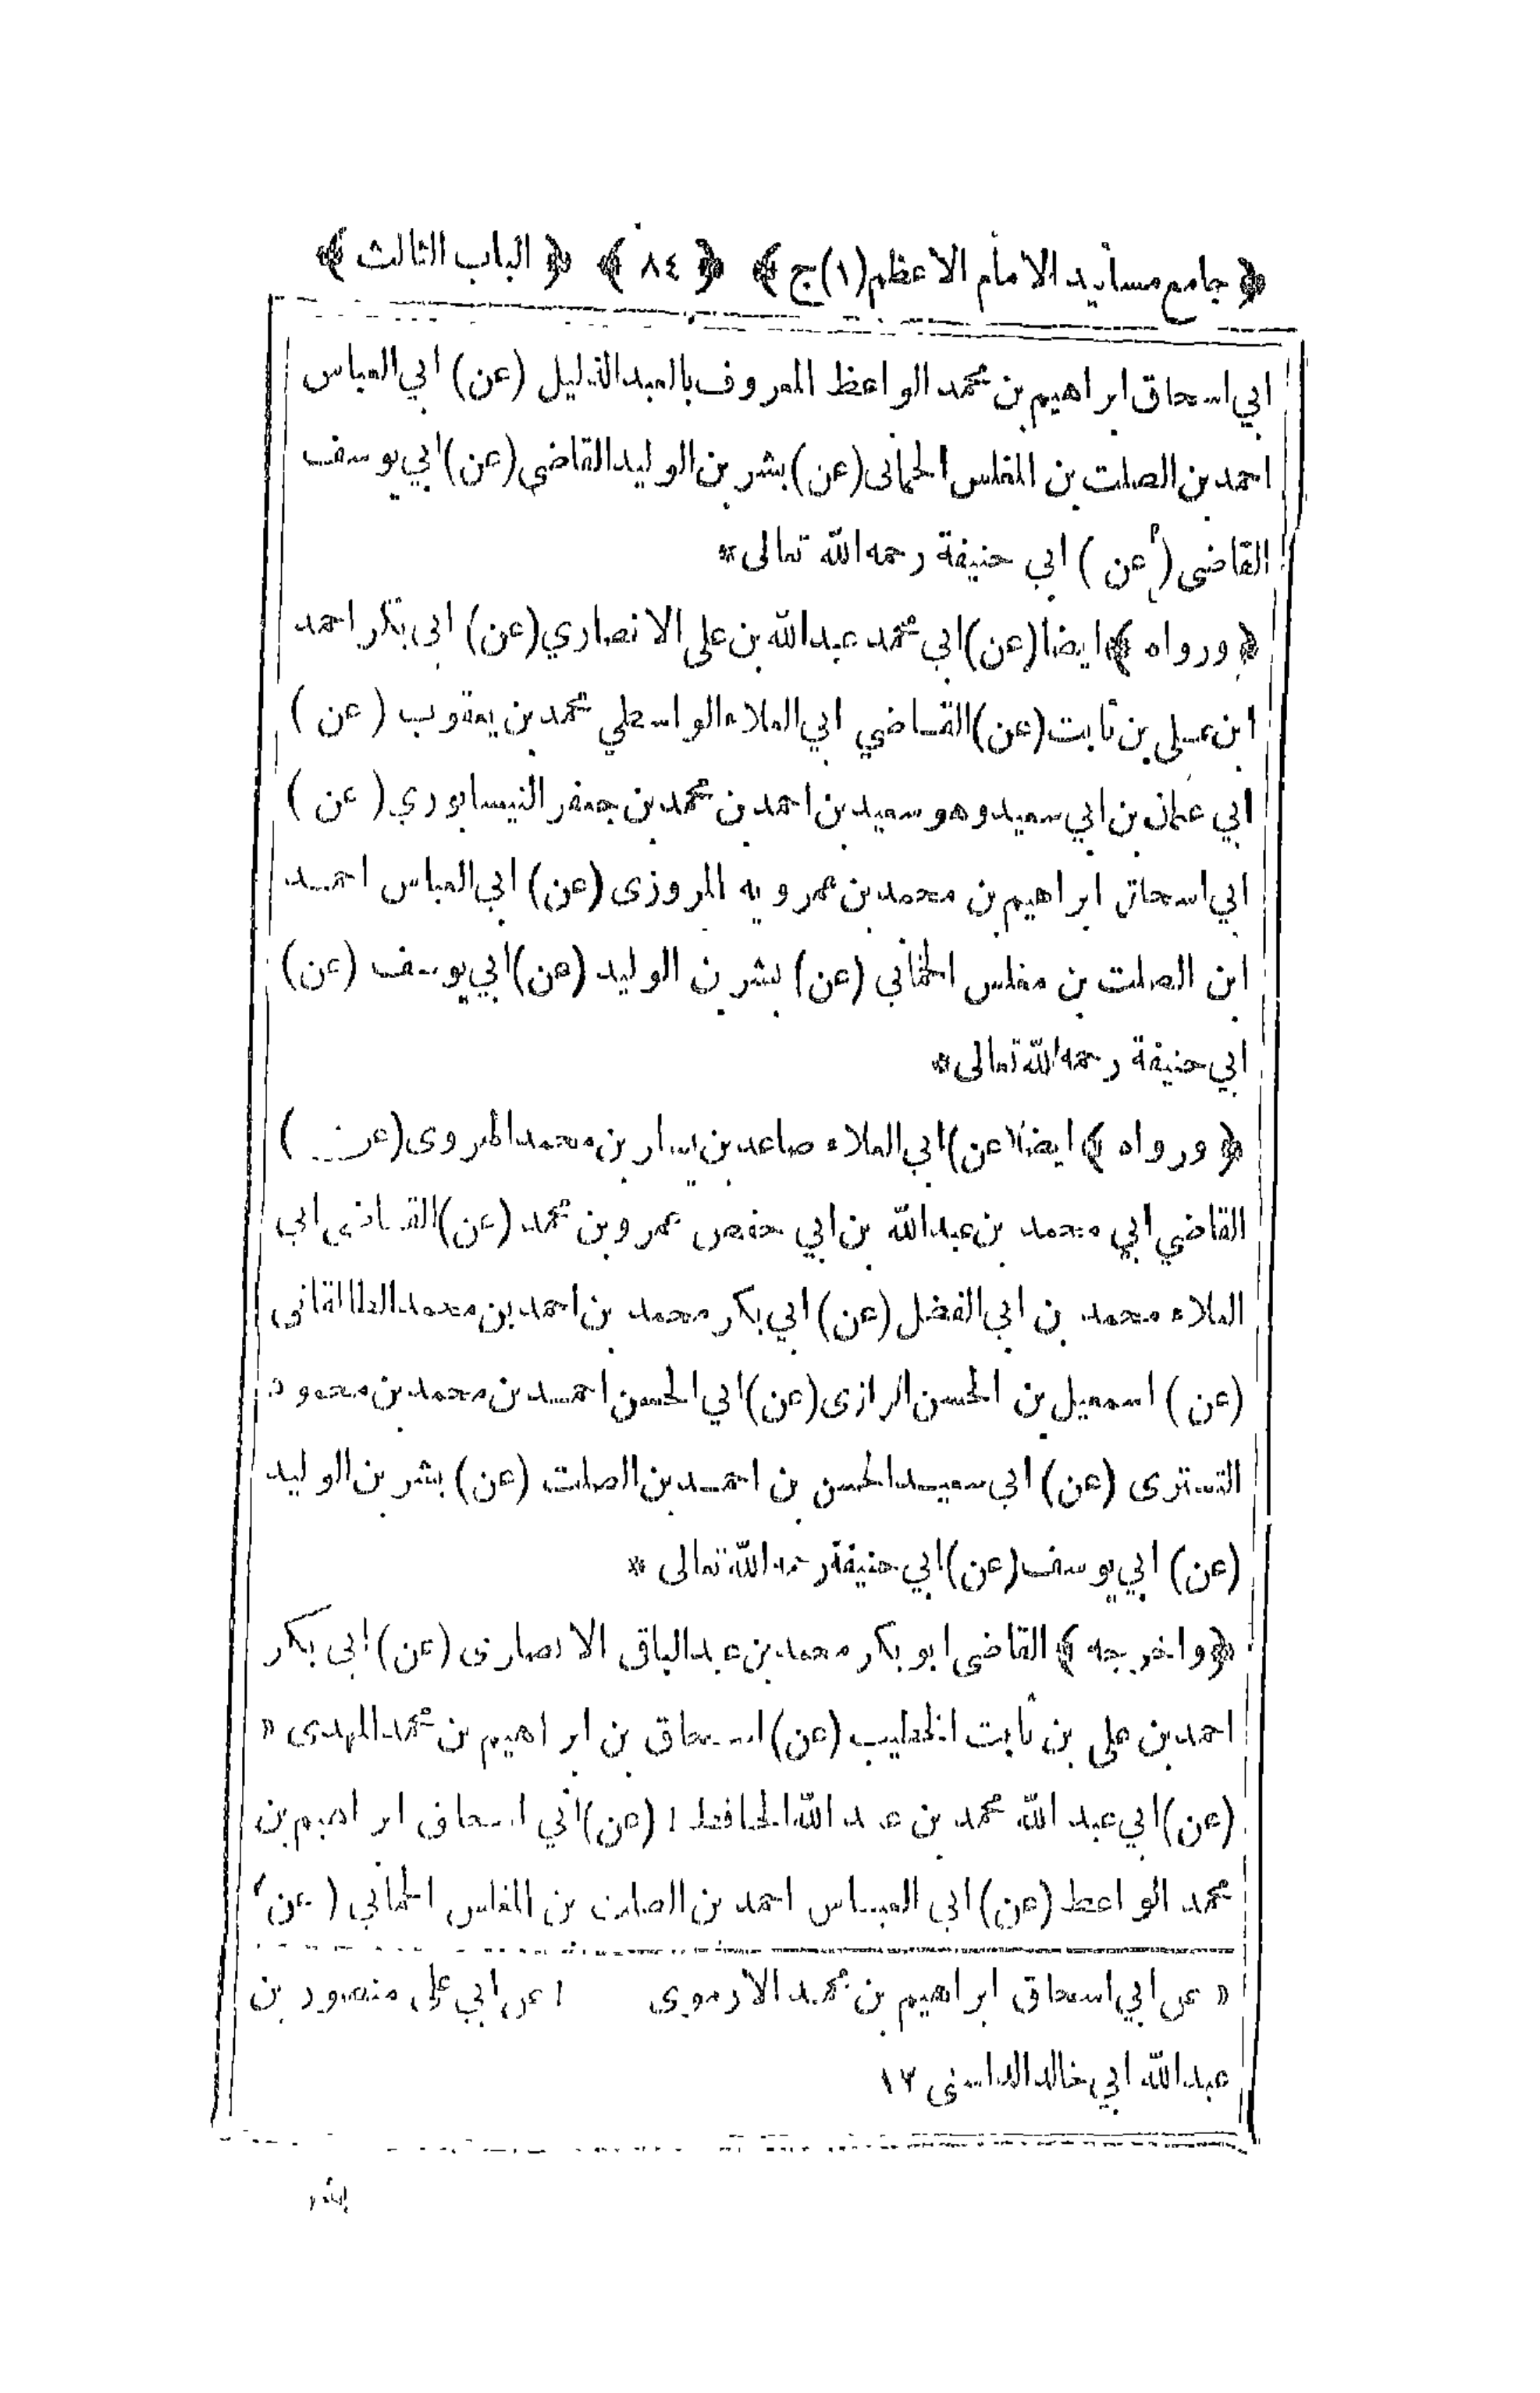 ﴿ جامع مسانيد الامام الاعظم (١) ج ﴾ ﴿ ٨٤ ﴾ ﴿ الباب الثالث ﴾
ابي اسحاق ابراهيم بن محمد الواعظ المعروف بالعبد الذليل (عن) ابي العباس
احمد بن الصلت بن المغلس الحماني (عن) بشر بن الوليد القاضي (عن) ابي يوسف
القاضى (عن) ابي حنيفة رحمه الله تعالى *
﴿ ورواه ﴾ ايضا (عن) ابي محمد عبد الله بن على الانصاري (عن) ابى بكر احمد
ابن على بن ثابت (عن) القاضي ابي العلاء الواسطي محمد بن يعقوب (عن)
ابي عثمان بن ابي سعيد وهو سعيد بن احمد بن محمد بن جعفر النيسابوري (عن)
ابي اسحاق ابراهيم بن محمد بن عمرويه المروزى (عن) ابي العباس احمد
ابن الصلت بن مغلس الحماني (عن) بشر بن الوليد (عن) ابي يوسف (عن)
ابي حنيفة رحمه الله تعالى *
﴿ ورواه ﴾ ايضا (عن) ابي العلاء صاعد بن يسار بن محمد الهروى (عن)
القاضي ابي محمد بن عبد الله بن ابي حفص عمرو بن محمد (عن) القاضي ابي
العلاء محمد بن ابي الفضل (عن) ابي بكر محمد بن احمد بن محمد الطالقانى
(عن) اسمعيل بن الحسن الرازى (عن) ابي الحسن احمد بن محمد بن محمود
التسترى (عن) ابي سعيد الحسن بن احمد بن الصلت (عن) بشر بن الوليد
(عن) ابي يوسف (عن) ابي حنيفة رحمه الله تعالى *
﴿ واخرجه ﴾ القاضى ابو بكر محمد بن عبد الباقى الانصارى (عن) ابى بكر
احمد بن على بن ثابت الخطيب (عن) اسحاق بن ابراهيم بن محمد المهدى «
(عن) ابي عبد الله محمد بن عبد الله الحافظ ١ (عن) ابي اسحاق ابراهيم بن
محمد الواعظ (عن) ابى العباس احمد بن الصلت بن المغلس الحماني (عن)
« عن ابي اسحاق ابراهيم بن محمد الارموى ١ عن ابي على منصور بن
عبد الله ابي خالد ١٢
بشر